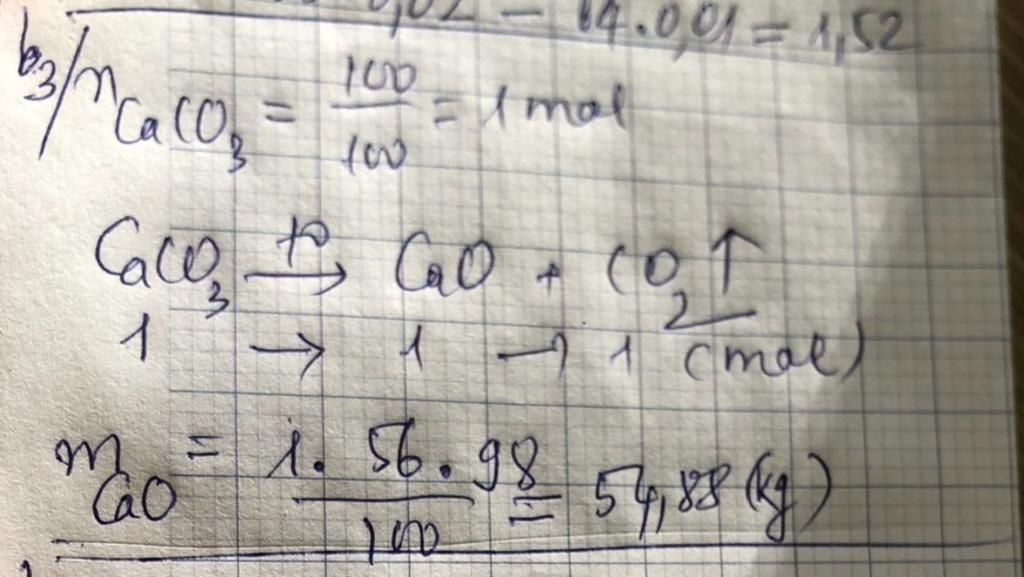 0,02 - 64.0,01 = 1,52
b3/ nCaCO3 = 100/100 = 1 mol
CaCO3 t°→ CaO + CO2↑
1 → 1 → 1 (mol)
mCaO = 1.56.98/100 = 54,88 (kg)